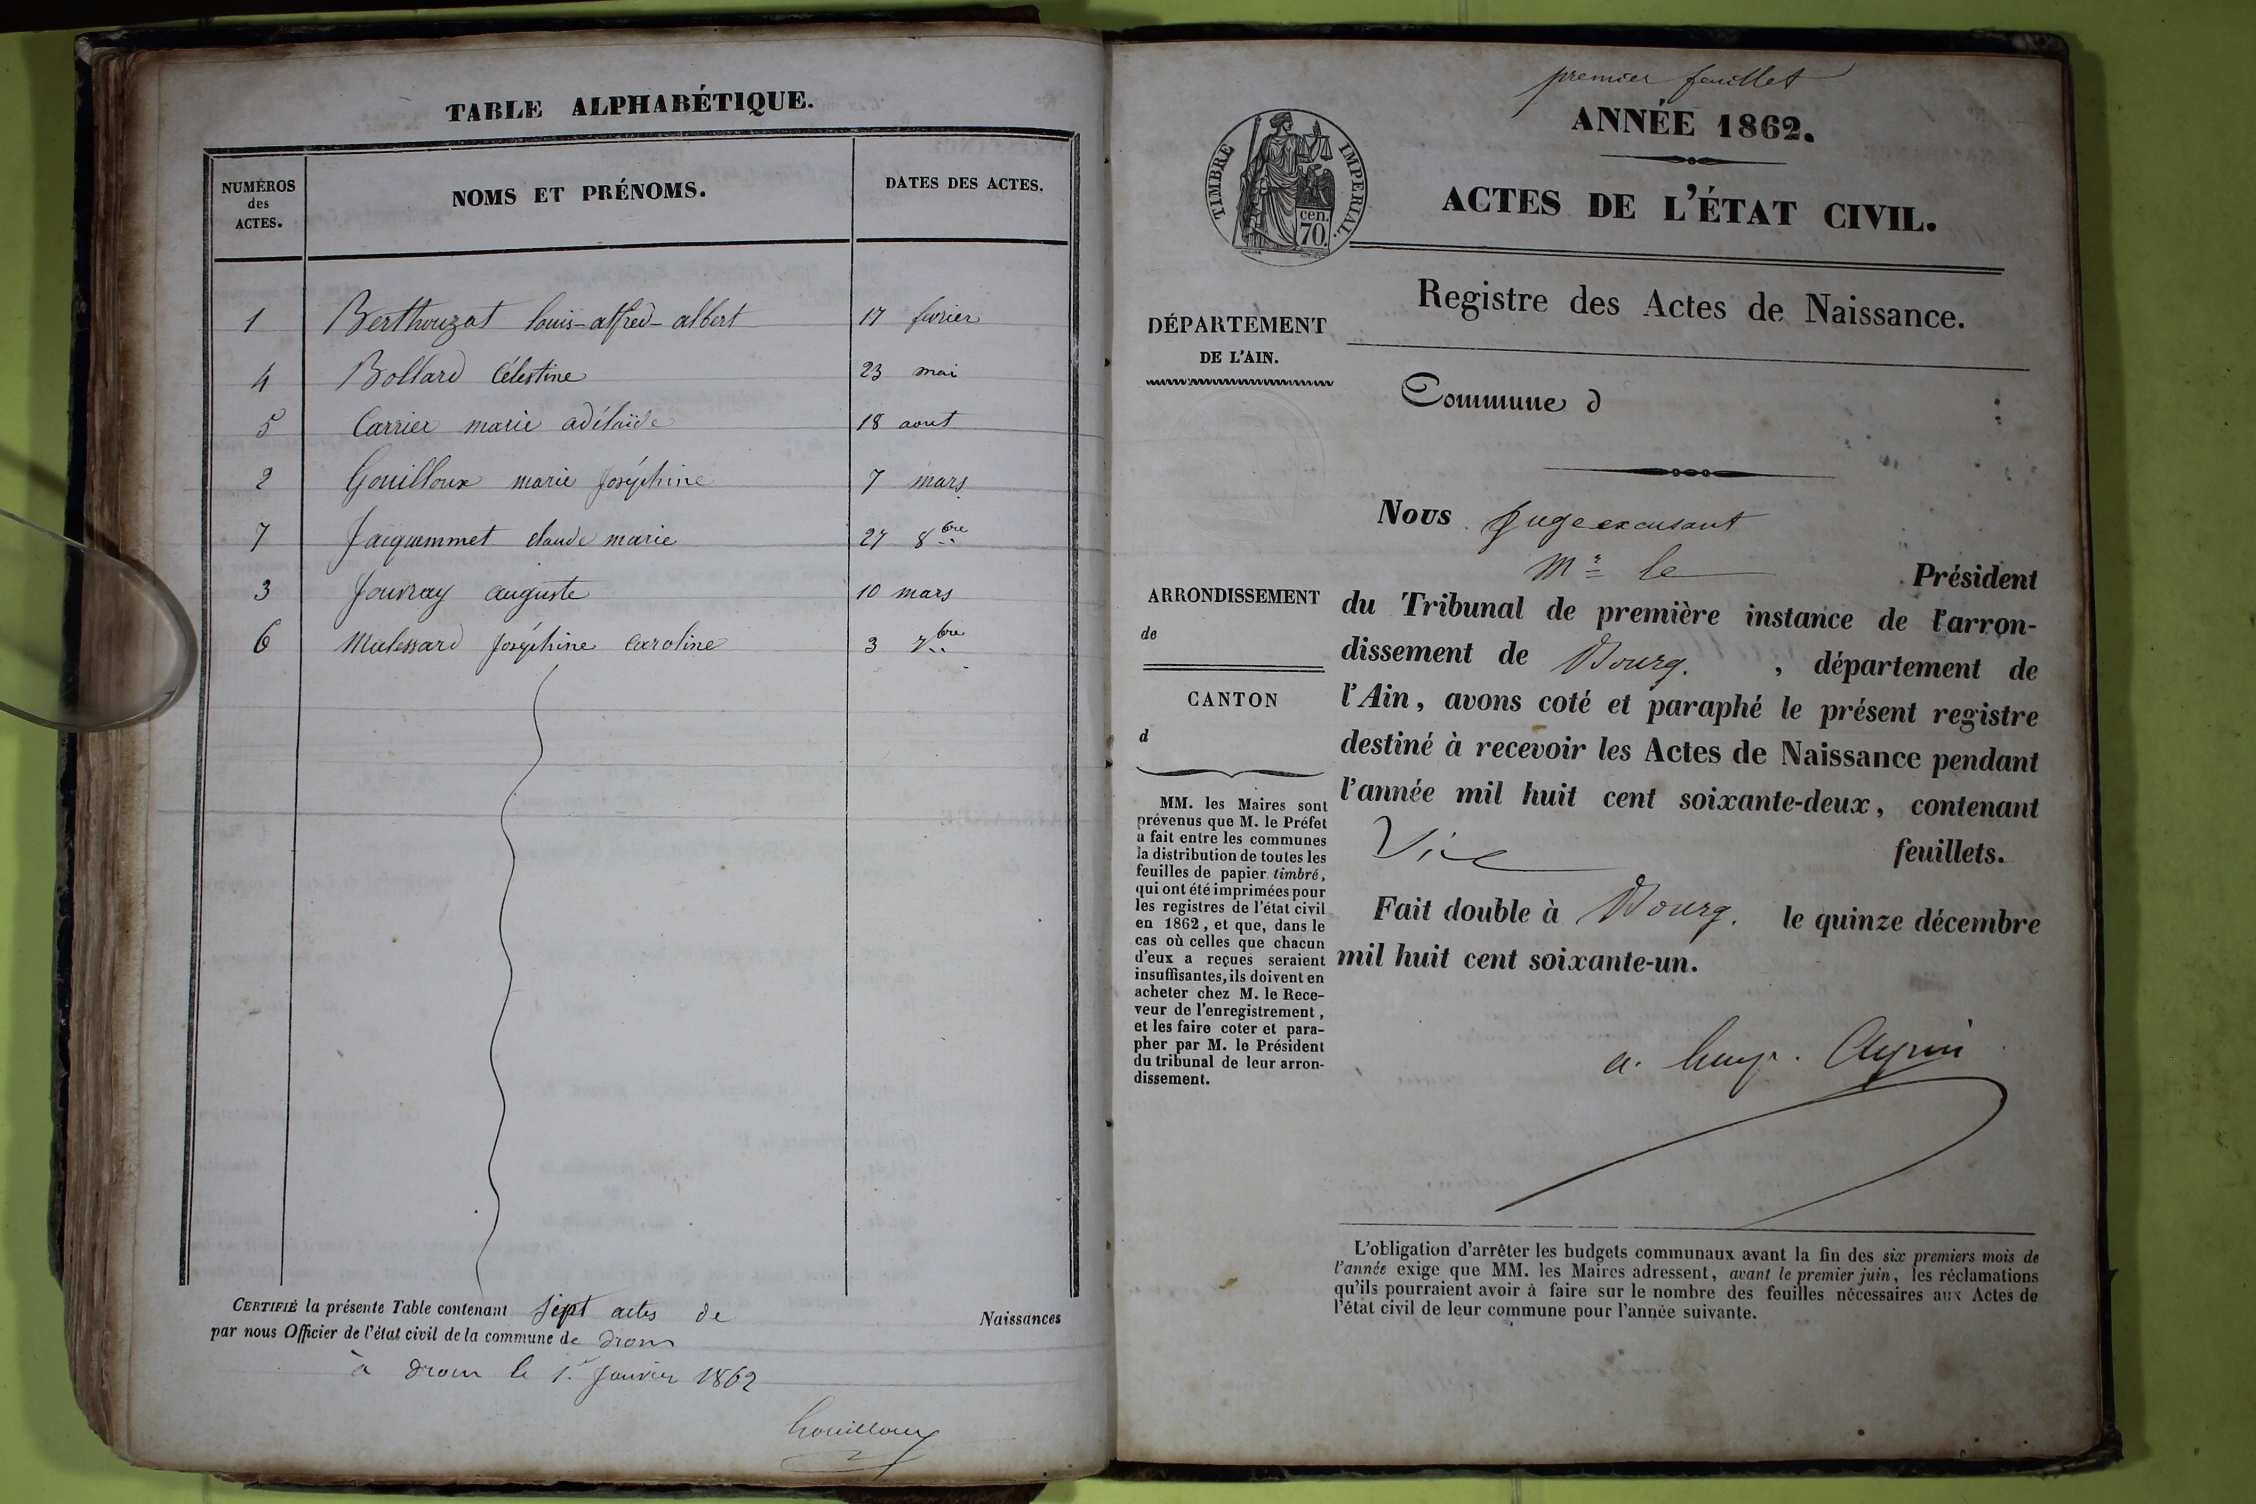 TABLE ALPHABÉTIQUE.
NUMÉROS des ACTES.
NOMS ET PRÉNOMS.
DATES DES ACTES.
1 Berthouzat louis-alfred-albert 17 fevrier
4 Bollard Célestine 23 mai
5 Carrier marie adélaïde 18 aout
2 Gouilloux marie joséphine 7 mars
7 Jacquemmet claude marie 27 8bre
3 Jouvray auguste 10 mars
6 Malessard joséphine caroline 3 7bre
CERTIFIÉ la présente Table contenant sept actes de Naissances
par nous Officier de l'état civil de la commune de drom
à drom le 1er janvier 1862
Gouilloux
premier feuillet
ANNÉE 1862.
TIMBRE IMPERIAL.
cen.
70.
ACTES DE L'ÉTAT CIVIL.
Registre des Actes de Naissance.
DÉPARTEMENT
DE L'AIN.
Commune d
ARRONDISSEMENT
de
CANTON
d
MM. les Maires sont
prévenus que M. le Préfet
a fait entre les communes
la distribution de toutes les
feuilles de papier timbré,
qui ont été imprimées pour
les registres de l'état civil
en 1862, et que, dans le
cas où celles que chacun
d'eux a reçues seraient
insuffisantes, ils doivent en
acheter chez M. le Rece-
veur de l'enregistrement,
et les faire coter et para-
pher par M. le Président
du tribunal de leur arron-
dissement.
Nous Juge excusant
Mr le Président
du Tribunal de première instance de l'arron-
dissement de Bourg. , département de
l'Ain, avons coté et paraphé le présent registre
destiné à recevoir les Actes de Naissance pendant
l'année mil huit cent soixante-deux, contenant
feuillets.
Fait double à Bourg. le quinze décembre
mil huit cent soixante-un.
L'obligation d'arrêter les budgets communaux avant la fin des six premiers mois de
l'année exige que MM. les Maires adressent, avant le premier juin, les réclamations
qu'ils pourraient avoir à faire sur le nombre des feuilles nécessaires aux Actes de
l'état civil de leur commune pour l'année suivante.